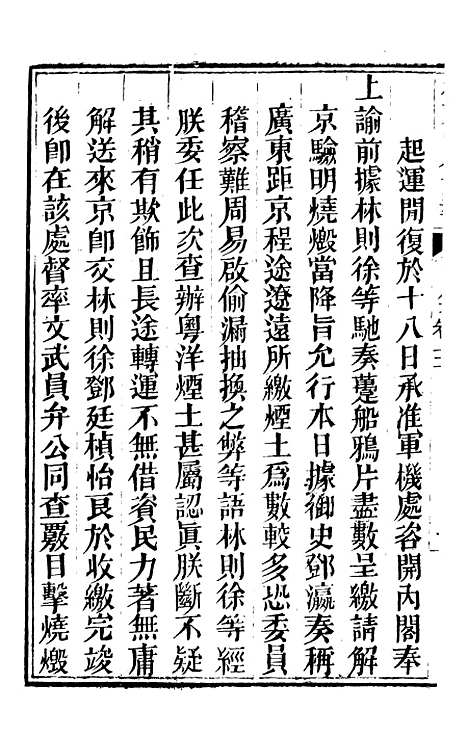 起運開復於十八日承准軍機處咨開內閣奉
上諭前據林則徐等馳奏躉船鴉片盡數呈繳請解
京驗明燒燬當降旨允行本日據御史鄧瀛奏稱
廣東距京程途遼遠所繳煙土爲數較多恐委員
稽察難周易啟偷漏抽換之弊等語林則徐等經
朕委任此次查辦粵洋煙土甚屬認眞朕斷不疑
其稍有欺飾且長途轉運不無借資民力著無庸
解送來京卽交林則徐鄧廷楨怡良於收繳完竣
後卽在該處督率文武員弁公同查覈目擊燒燬